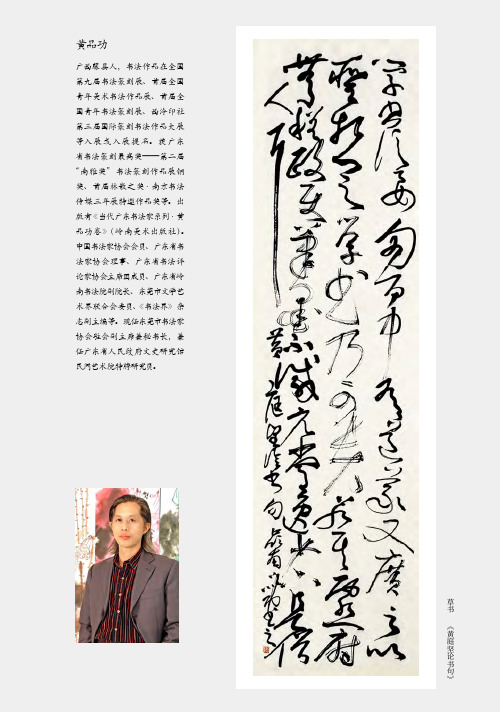 黄品功
广西藤县人，书法作品在全国
第九届书法篆刻展、首届全国
青年美术书法作品展、首届全
国青年书法篆刻展、西泠印社
第三届国际篆刻书法作品大展
等入展或入展提名。获广东
省书法篆刻最高奖——第二届
“南雅奖”书法篆刻作品展铜
奖、首届林散之奖·南京书法
传媒三年展特邀作品奖等。出
版有《当代广东书法家系列·黄
品功卷》（岭南美术出版社）。
中国书法家协会会员、广东省书
法家协会理事、广东省书法评
论家协会主席团成员、广东省岭
南书法院副院长、东莞市文学艺
术界联合会委员、《书法界》杂
志副主编等。现任东莞市书法家
协会驻会副主席兼秘书长，兼
任广东省人民政府文史研究馆
民间艺术院特聘研究员。
学书须要胸中有道义又广之以
圣哲之学书乃可贵若其灵府
无程政使笔墨不减元常逸少只是俗
人耳
黄庭坚论书句
草书 《黄庭坚论书句》